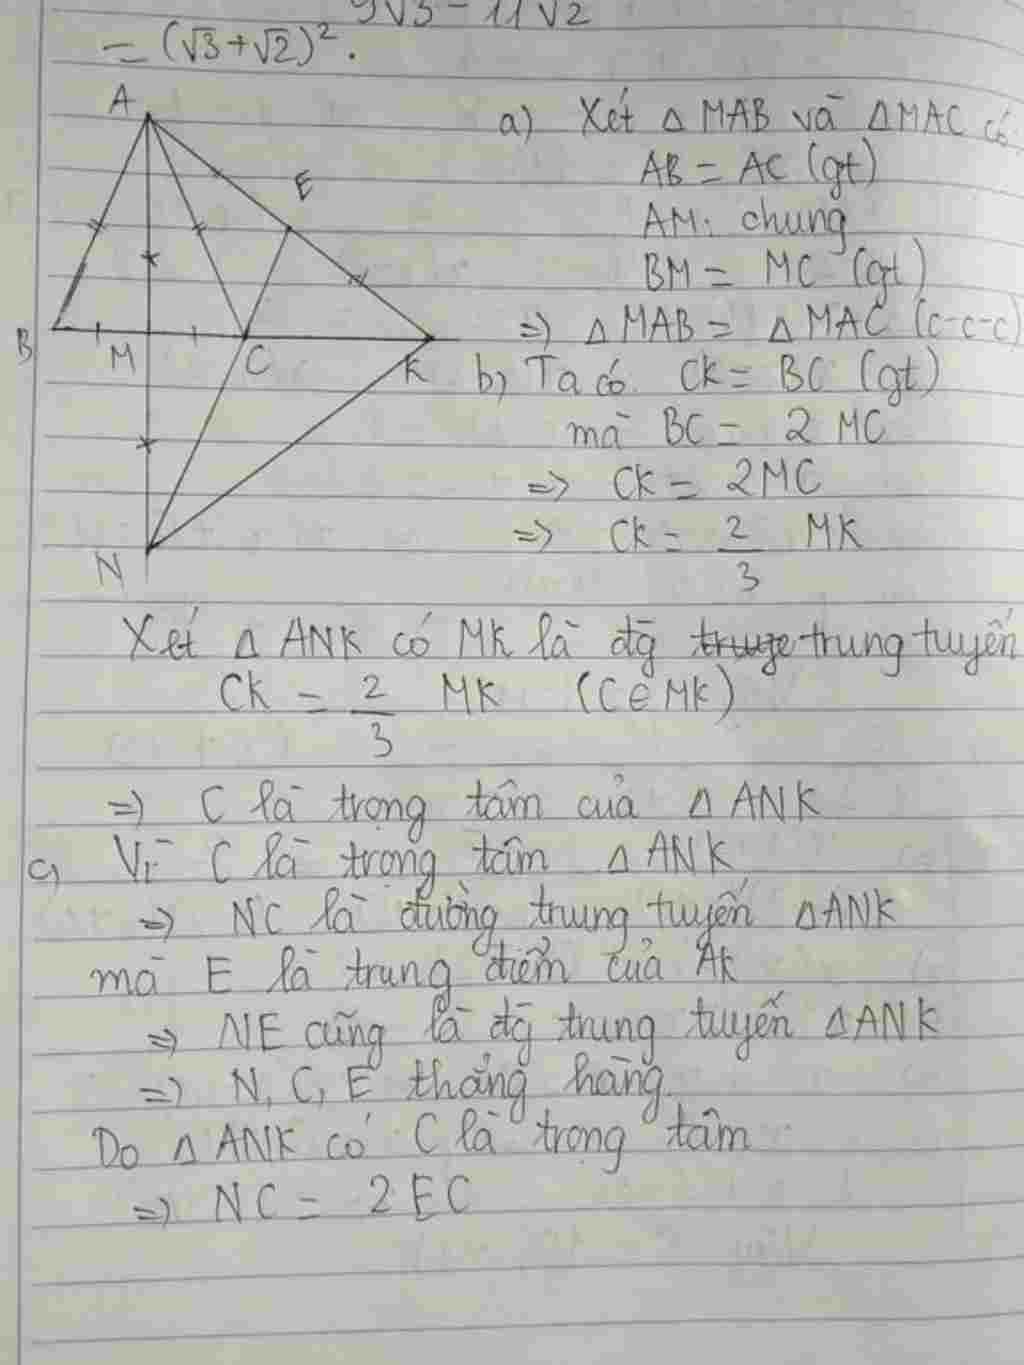 9√3 - 11√2
= (√3+√2)².
A
E
B
M
C
K
N
a) Xét △ MAB và △MAC có
AB = AC (gt)
AM: chung
BM = MC (gt)
=> △ MAB = △ MAC (c-c-c)
b, Ta có CK = BC (gt)
mà BC = 2 MC
=> CK = 2MC
=> CK = 2/3 MK
Xét △ ANK có MK là đg trung tuyến
CK = 2/3 MK (C∈MK)
=> C là trọng tâm của △ ANK
c, Vì C là trọng tâm △ ANK
=> NC là đường trung tuyến △ANK
mà E là trung điểm của AK
=> NE cũng là đg trung tuyến △ANK
=> N, C, E thẳng hàng.
Do △ ANK có C là trọng tâm
=> NC = 2EC